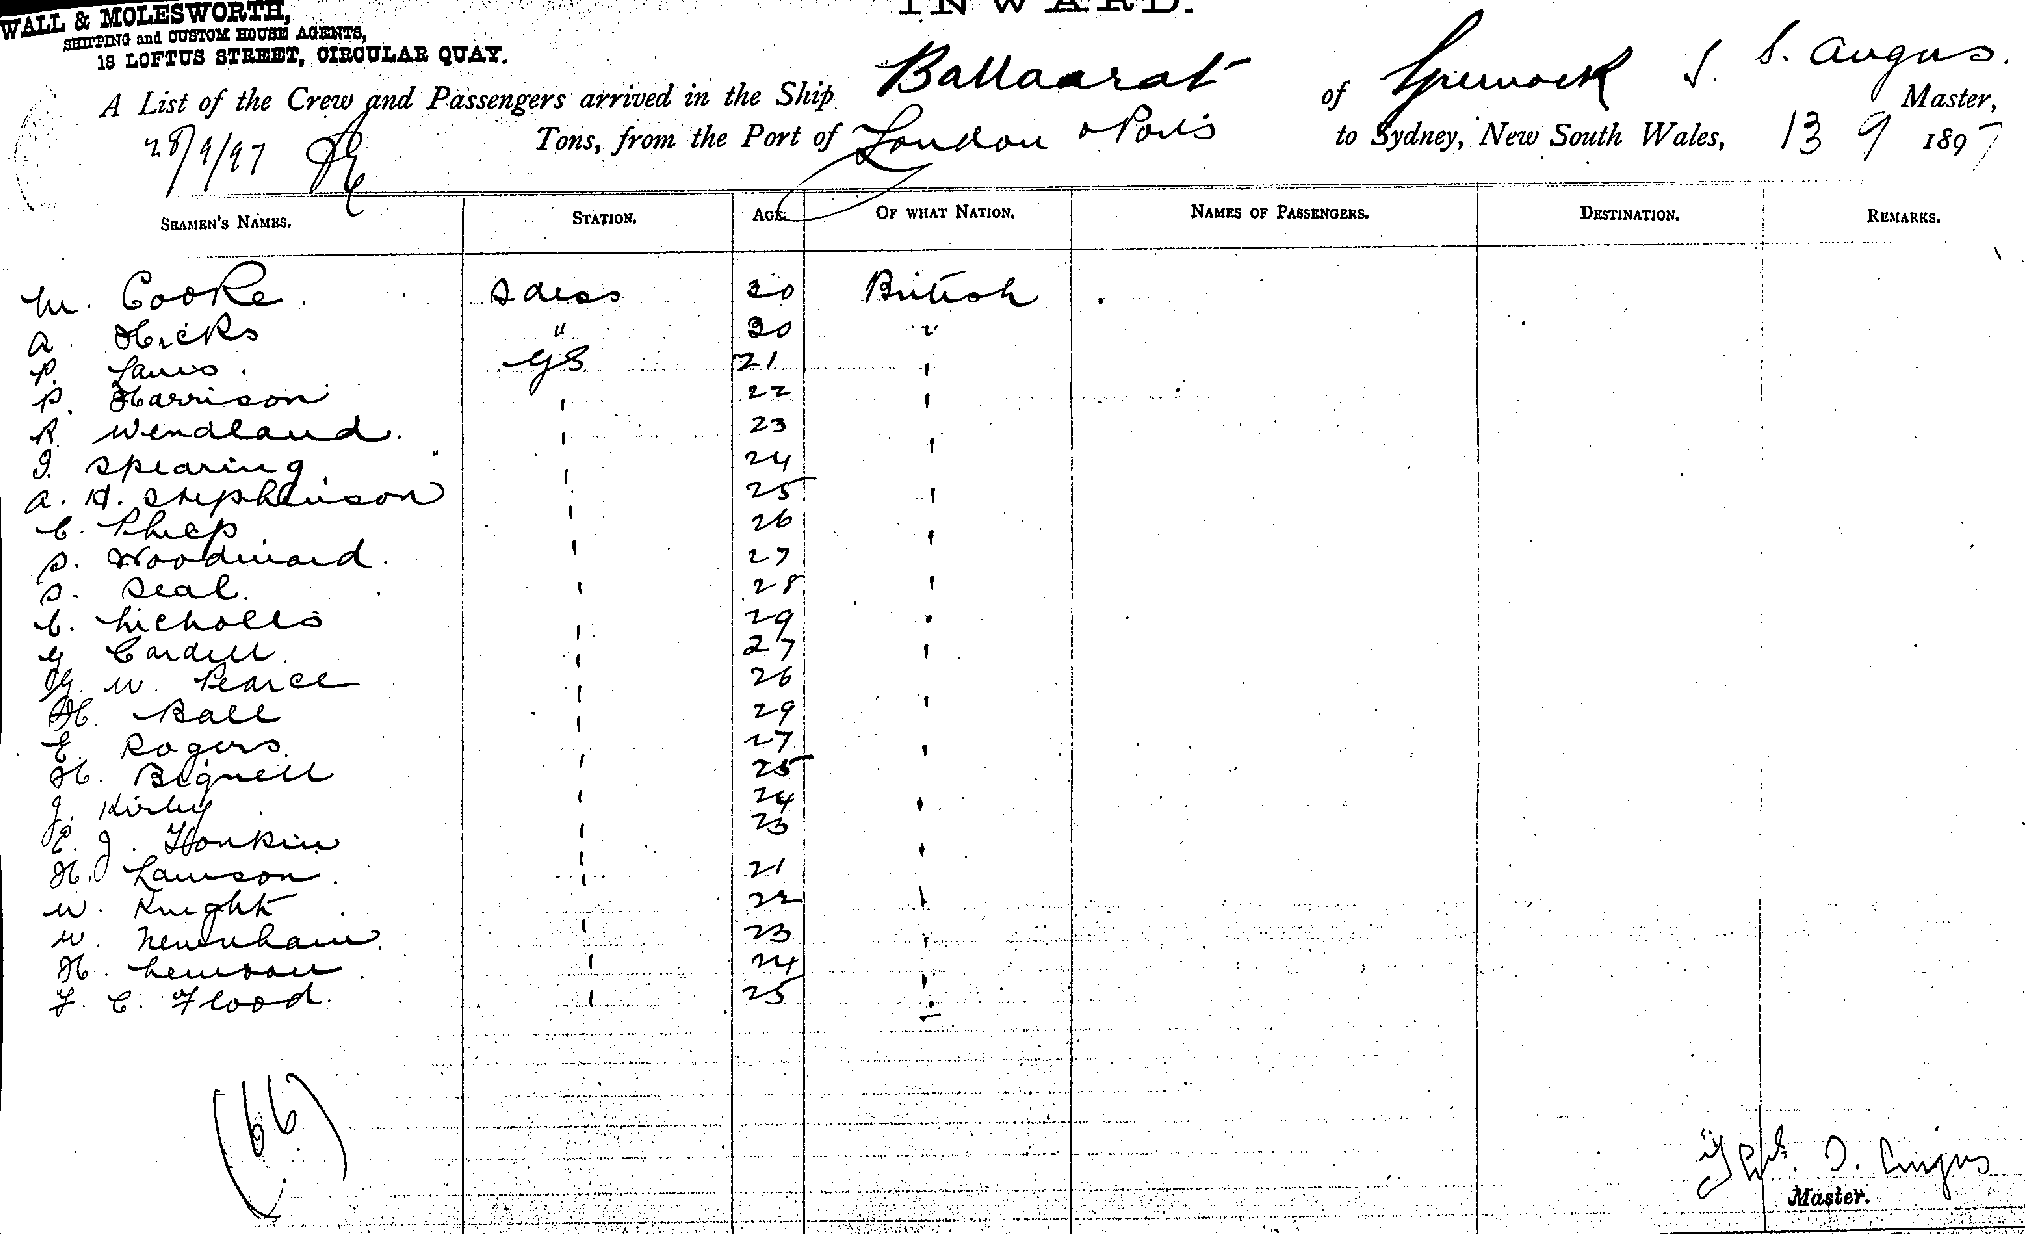 INWARD.
WALL & MOLESWORTH,
SHIPPING and CUSTOM HOUSE AGENTS,
18 LOFTUS STREET, CIRCULAR QUAY.
A List of the Crew and Passengers arrived in the Ship Ballaarat of Greenock S. S. Angus. Master,
28/9/97 Tons, from the Port of London & Ports to Sydney, New South Wales, 13 9 1897
SEAMEN'S NAMES. STATION. AGE. OF WHAT NATION. NAMES OF PASSENGERS. DESTINATION. REMARKS.
M. Cooke Sdess 20 British
A. Hicks " 20 "
P. GS 21 '
P. Harrison ' 22 '
R. Wendland. ' 23 '
I. Spearing ' 24
A. H. Stephenson ' 25 '
C. ' 26 '
S. Woodward. ' 27
S. Seal. ' 28 '
C. Nicholls ' 29 '
G. Cardell ' 27 '
G. W. Pearce ' 26
H. Ball ' 29 '
E. Rogers ' 27 '
H. Bignell ' 25
J. Kirby ' 24 '
E. J. Honkin ' 23 '
H. Lawson. ' 21
W. Knight ' 22 '
W. Newnham. ' 23 '
H. Lewson ' 24 '
F. C. Flood. ' 25 '
(66)
Angus
Master.